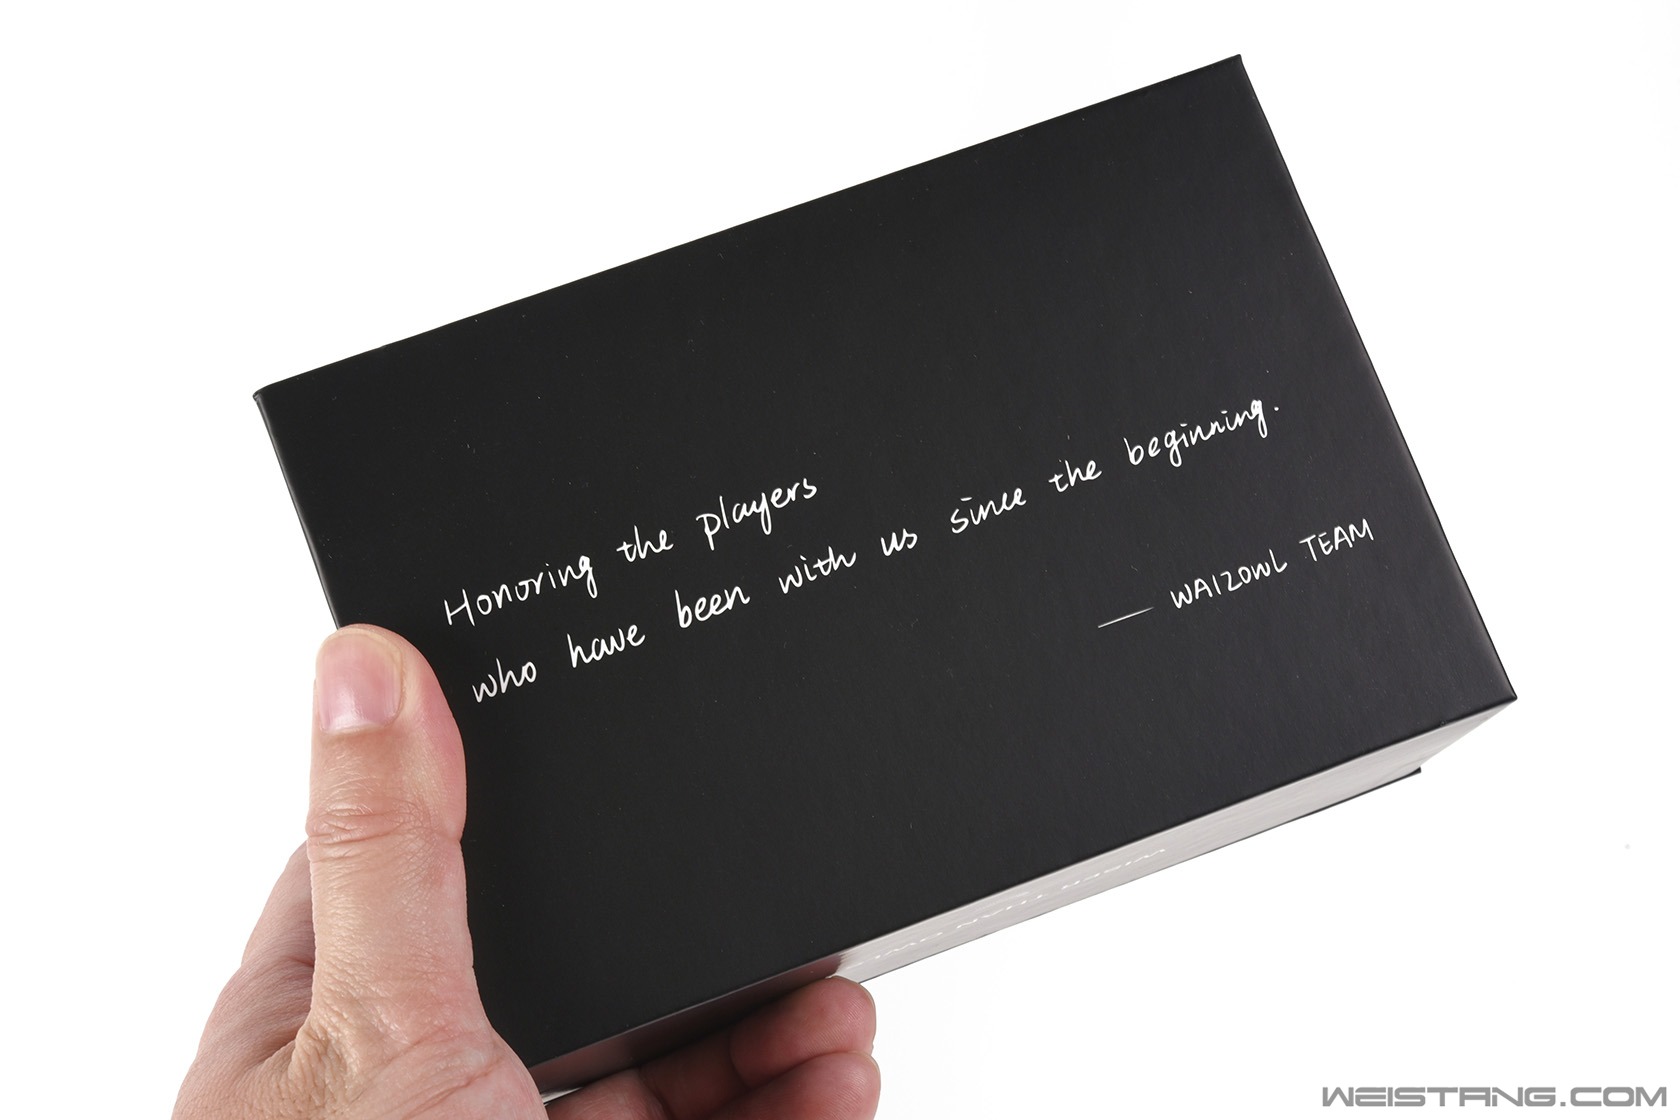 Honoring the players
who have been with us since the beginning.
— WAIZOWL TEAM
WEISTANG.COM